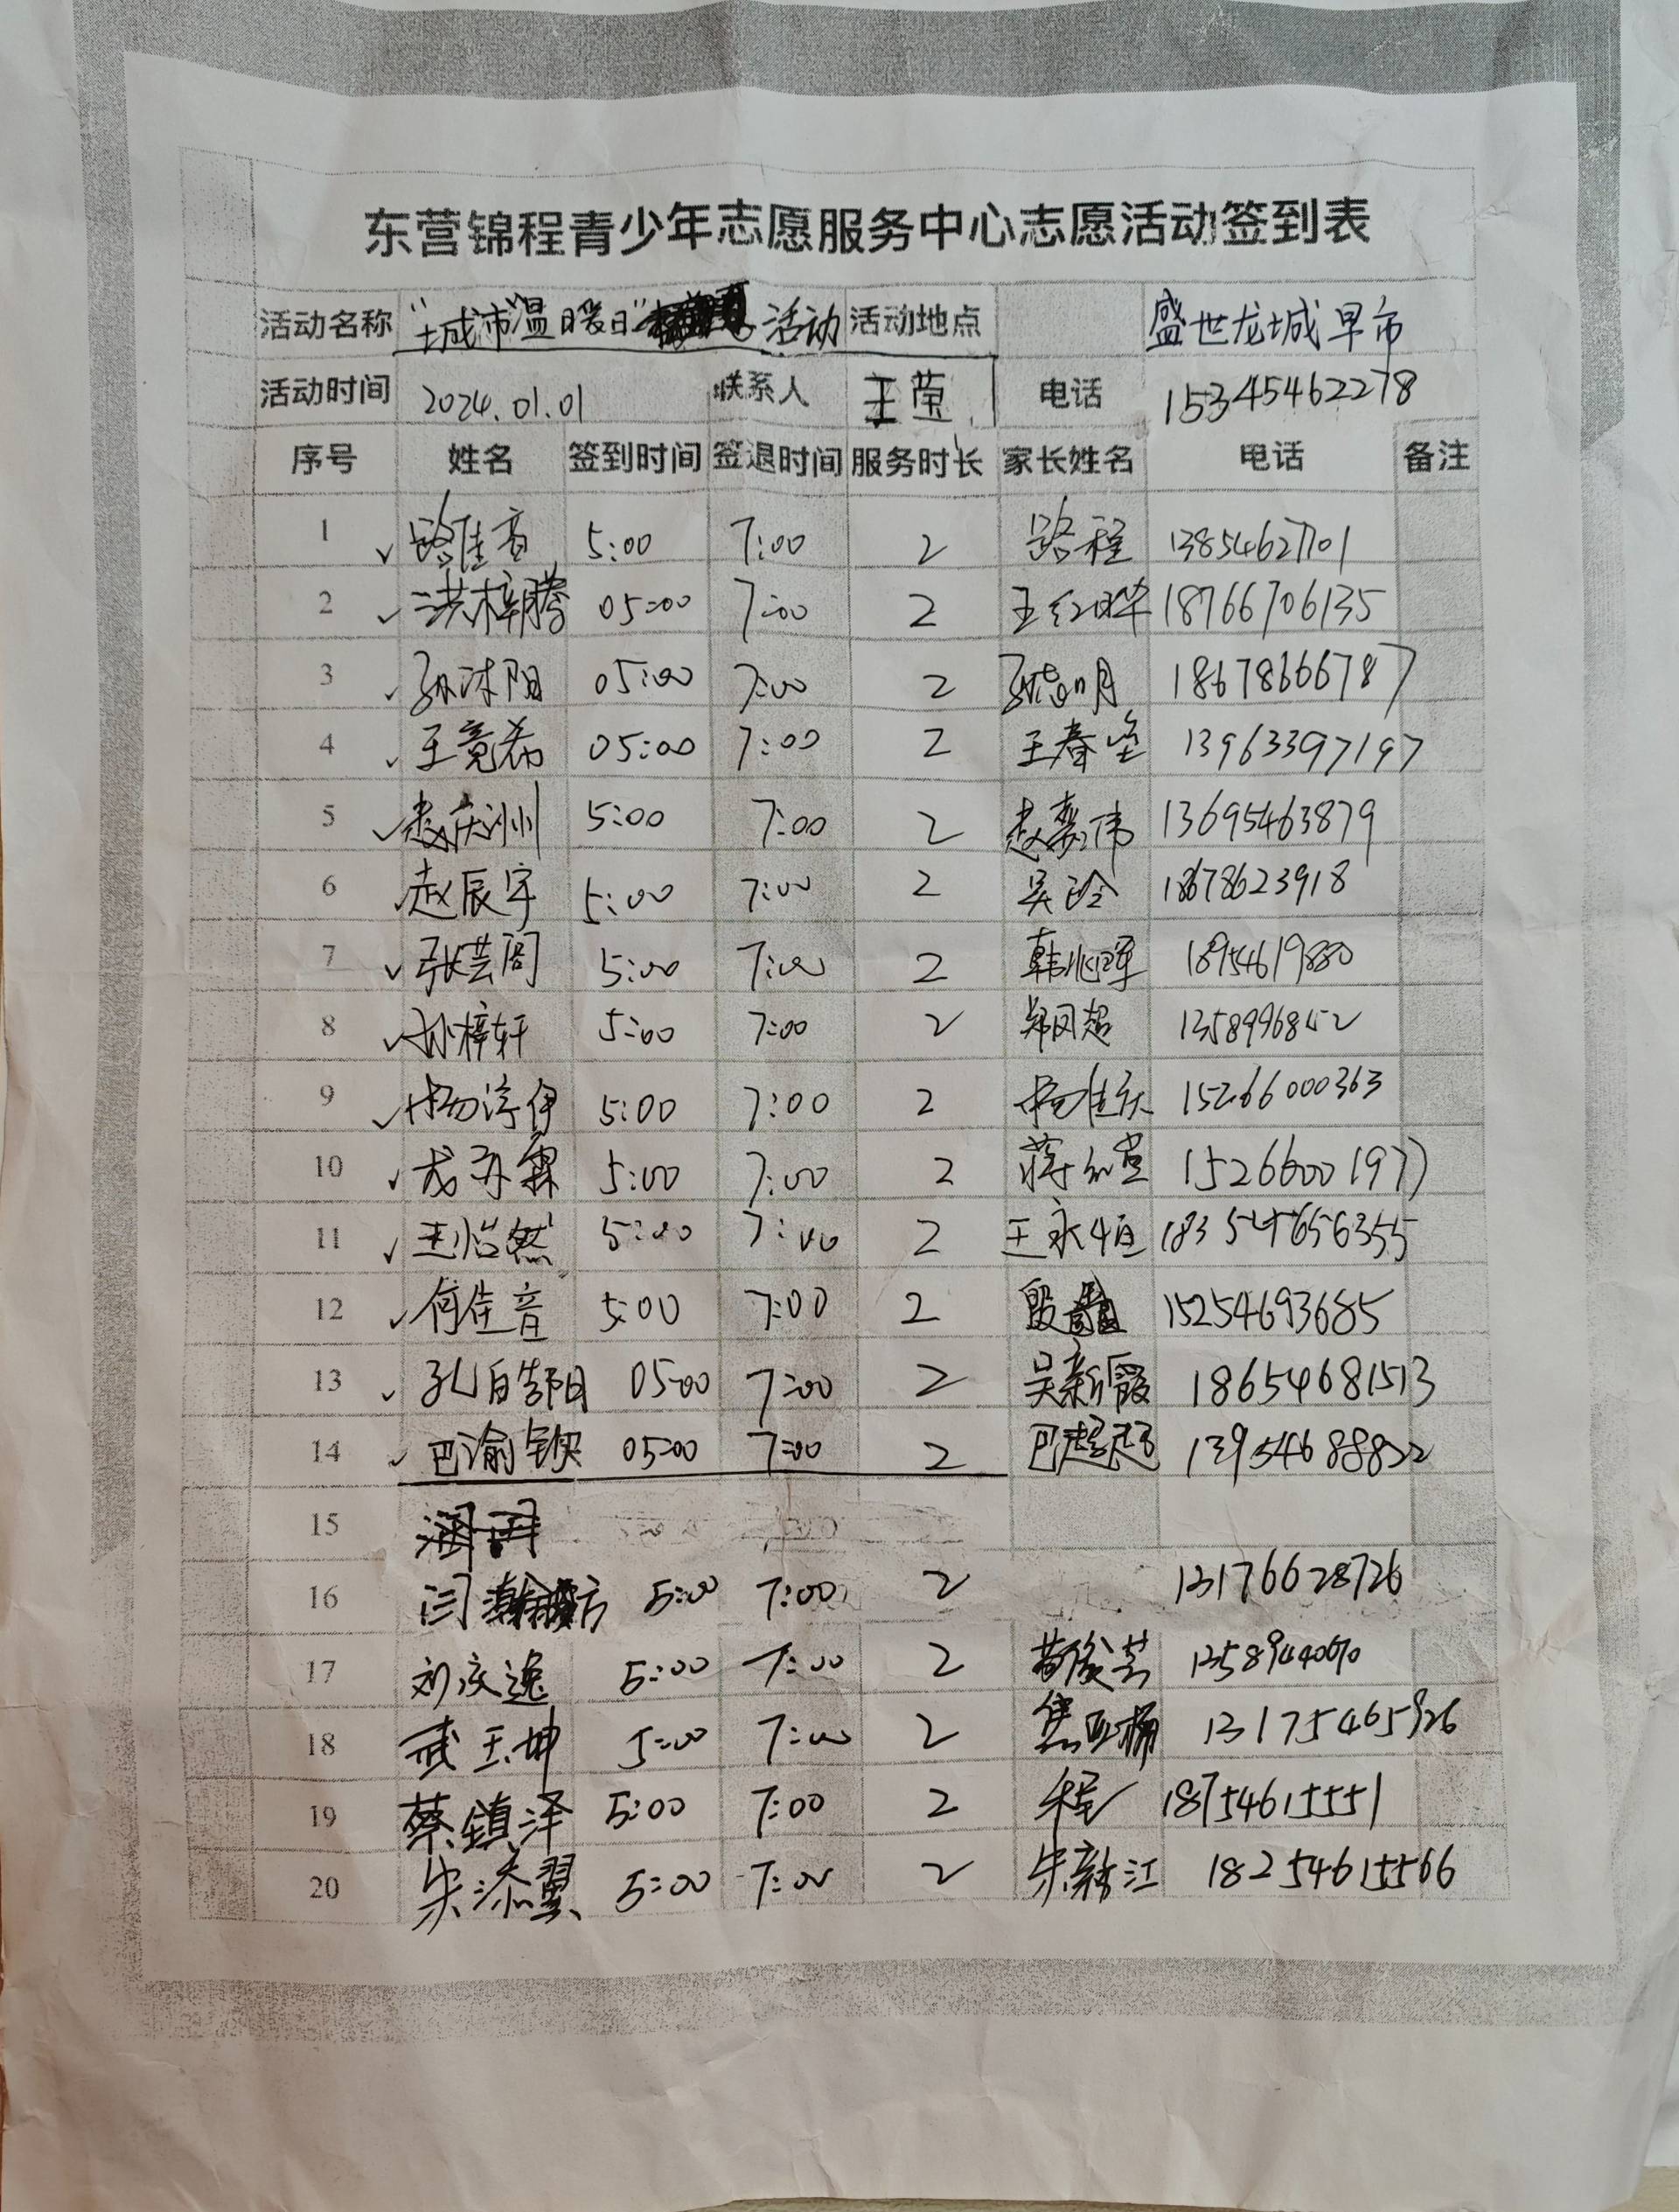 东营锦程青少年志愿服务中心志愿活动签到表
活动名称 "城市温暖日" 活动 活动地点 盛世龙城早市
活动时间 2024.01.01 联系人 王莹 电话 15345462278
序号 姓名 签到时间 签退时间 服务时长 家长姓名 电话 备注
1 路佳音 5:00 7:00 2 路程 13854627701
2 洪梓腾 05:00 7:00 2 王红晔 18766706135
3 孙沐阳 05:00 7:00 2 18678666787
4 王竟希 05:00 7:00 2 王春 13963397197
5 赵庆洲 5:00 7:00 2 赵 伟 13695463879
6 赵辰宇 5:00 7:00 2 吴玲 18678623918
7 张芸阁 5:00 7:00 2 韩 18954619880
8 孙梓轩 5:00 7:00 2 郑凤超 13589996852
9 杨淳伊 5:00 7:00 2 杨佳庆 15266000363
10 5:00 7:00 2 蒋 15266001977
11 王怡然 5:00 7:00 2 王永恒
12 何佳音 5:00 7:00 2 殷 15254693685
13 孔皓阳 05:00 7:00 2 吴新霞 18654681513
14 巴渝钦 05:00 7:00 2 巴超超 13954688822
15
16 闫 方 5:00 7:00 2 13176628726
17 刘庆逸 5:00 7:00 2
18 武玉坤 5:00 7:00 2 焦 13175465926
19 蔡镇泽 5:00 7:00 2 18754615551
20 宋添翼 5:00 7:00 2 宋新江 18254615566